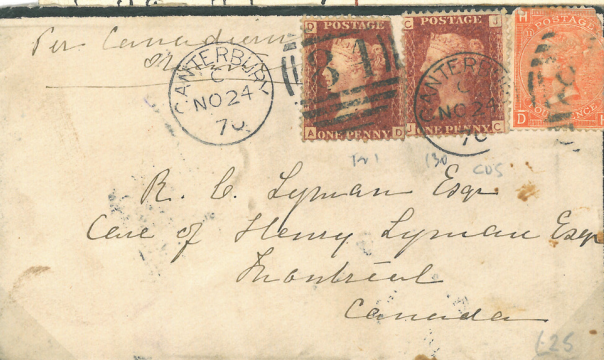 Per Canadian
CANTERBURY
C
NO 24
70
D POSTAGE
A ONE PENNY D
C POSTAGE J
J ONE PENNY C
CANTERBURY
C
NO 24
70
H POSTAGE
D
130
CDS
R. C. Lyman Esqr
Care of Henry Lyman Esqr
Montreal
Canada